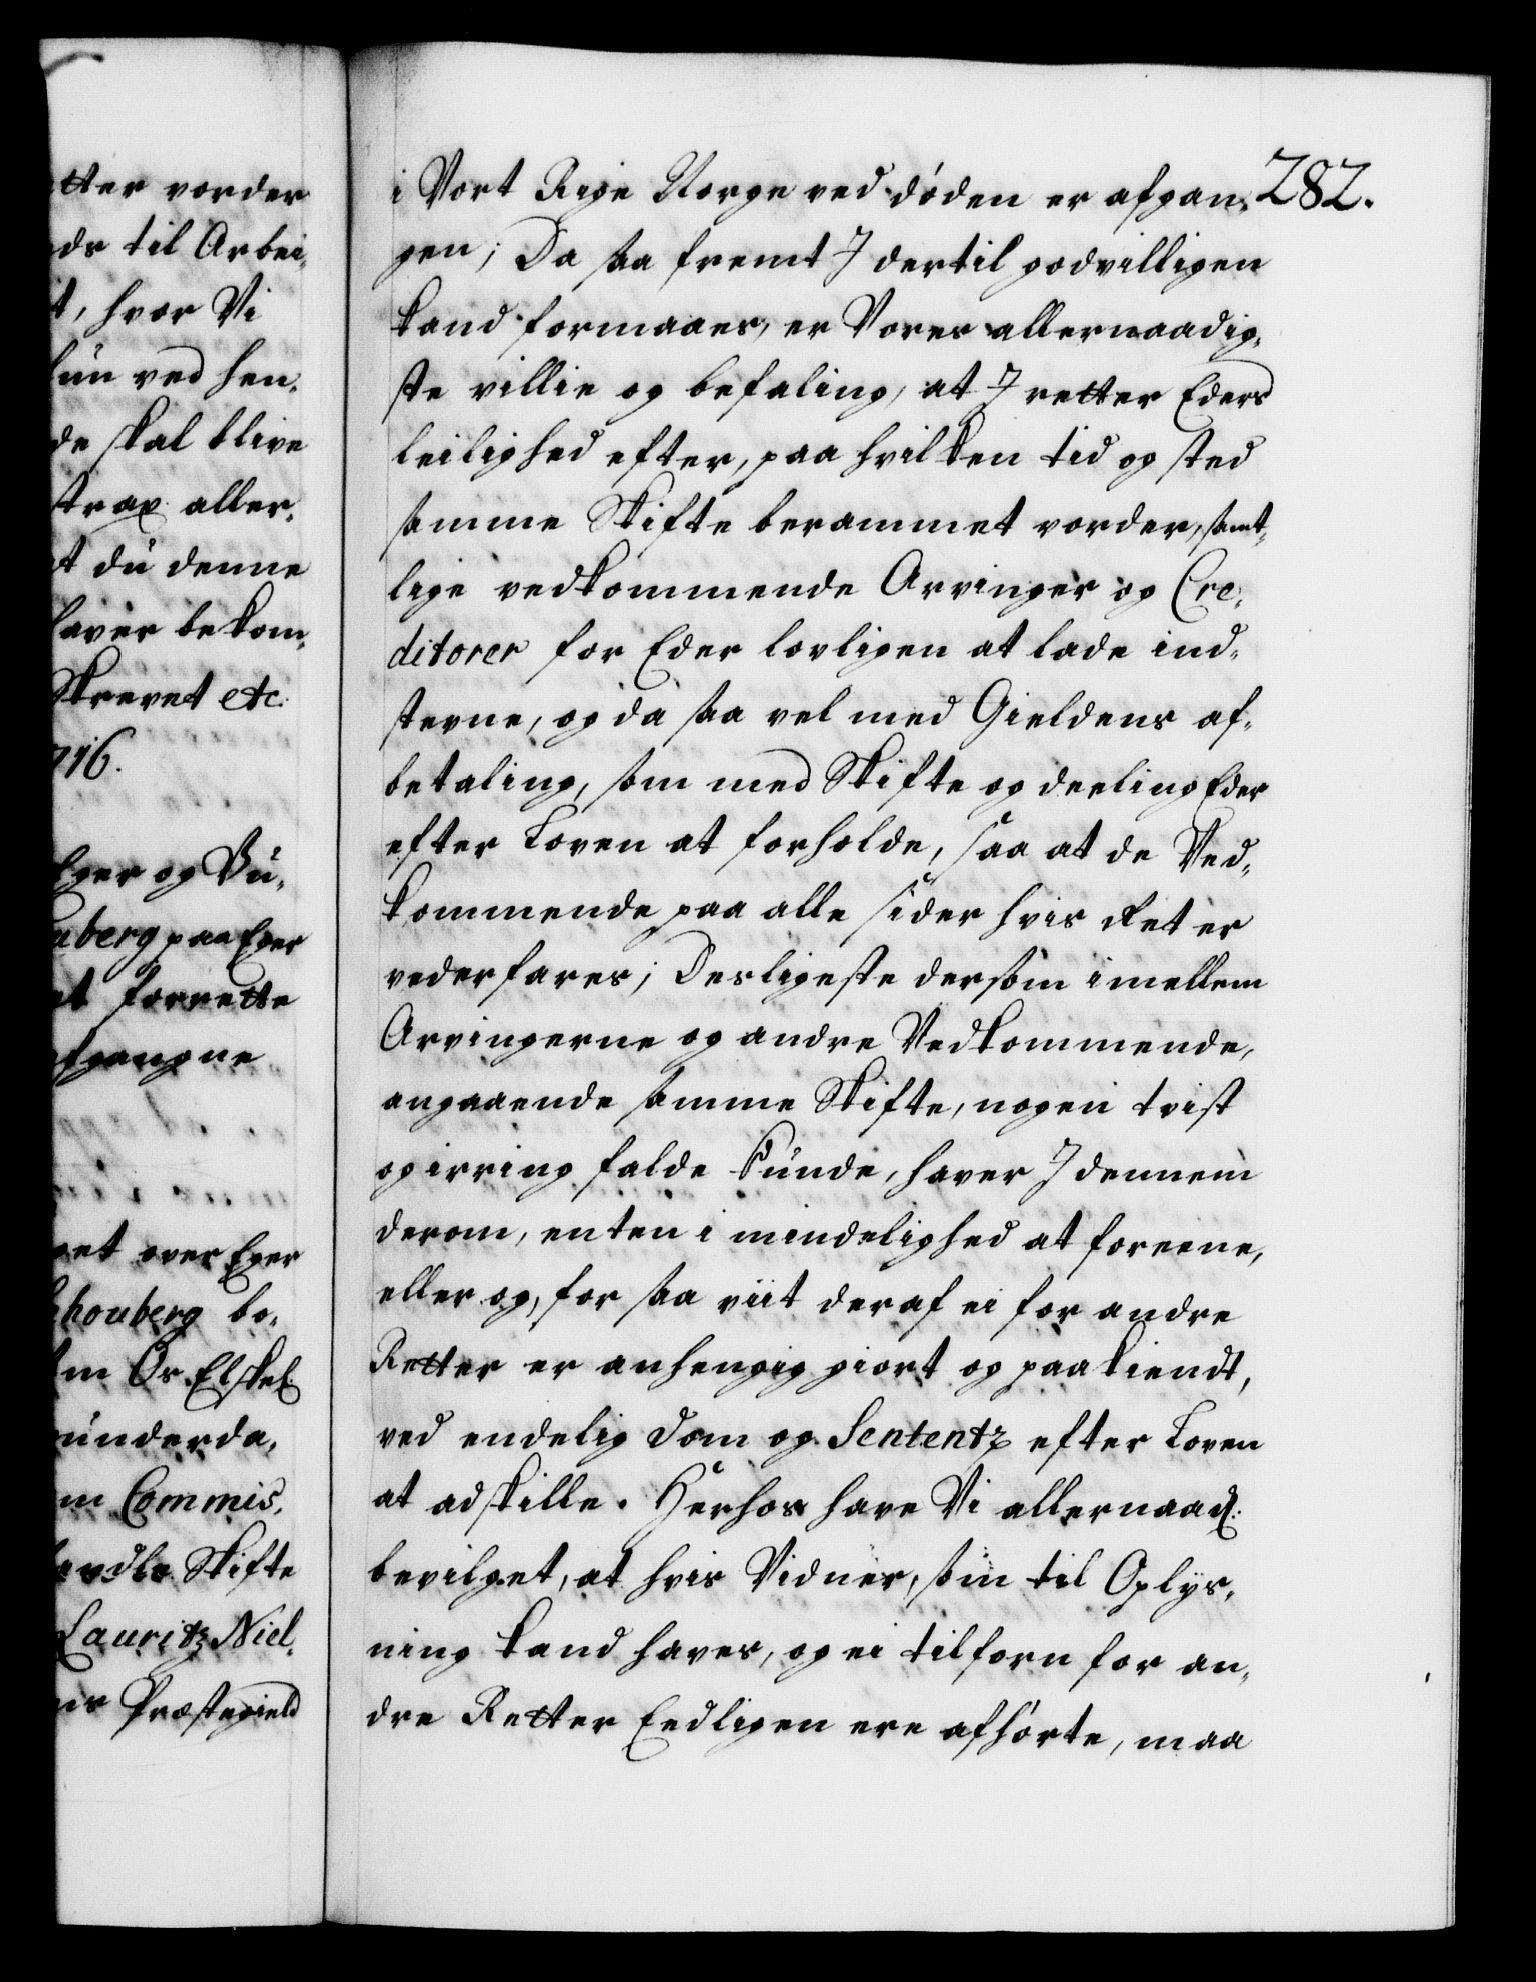 tter vorder
ds til Arbei¬
t, hvor Vi
hun ved hen¬
de skal blive
strax aller¬
t du denne
haver bekom¬
Skrevet etc.
716.
Eger og Bu¬
uberg paa Eger
at forrette
afgangne
get over Eger
houberg bo¬
m Os Elskel.
underda¬
m Commis¬
Skifte
Lauritz Niel¬
ns Præstegield
282.
i Vort Rige Norge ved døden er afgan¬
gen; Da saa fremt I dertil godvilligen
kand formaaes, er Vores allernaadig¬
ste villie og befaling, at I retter Eders
leilighed efter, paa hvilken tid og sted
samme Skifte berammet vorder, samt¬
lige vedkommende Arvinger og Cre¬
ditorer for Eder lovligen at lade ind¬
stevne, og da saa vel med Gieldens af¬
betaling, som med Skifte og deeling Eder
efter Loven at forholde, saa at de Ved¬
kommende paa alle sider hvis Ret er
vederfares; Desligeste dersom imellem
Arvingerne og andre Vedkommende,
angaaende samme Skifte, nogen tvist
og irring falde kunde, haver I dennem
derom, enten i mindelighed at foreene,
eller og, for saa viit deraf ei for andre
Retter er anhengig giort og paakiendt,
ved endelig Dom og Sententz efter Loven
at adskille. Herhos have Vi allernaad:
bevilget, at hvis Vidner, som til Oplys¬
ning kand haves, og ei tilforn for an¬
dre Retter Eedligen ere afhørte, maa